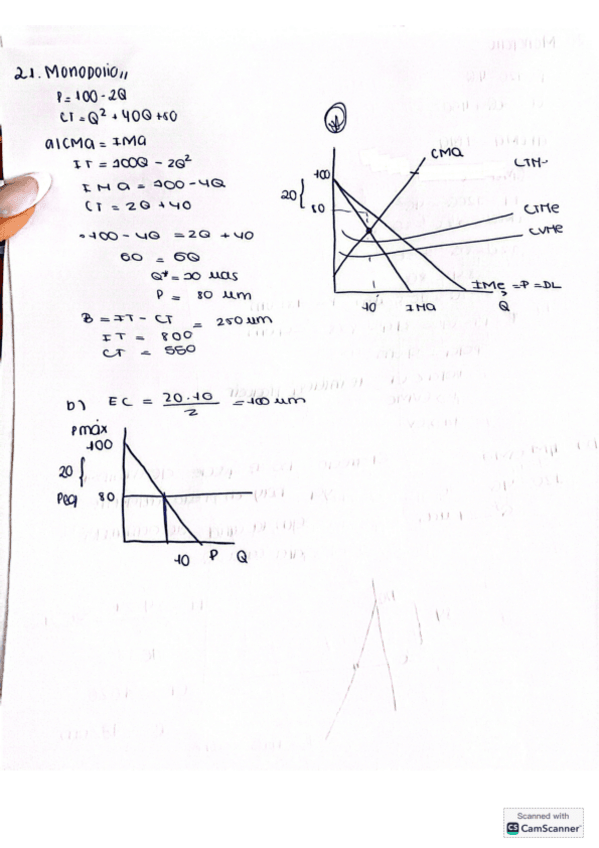 21. Monopolio,,
P = 100 - 2Q
CT = Q² + 40Q + 50
a) CMA = IMA
IT = 100Q - 2Q²
IMA = 100 - 4Q
CT = 2Q + 40
= 100 - 4Q = 2Q + 40
60 = 6Q
Q* = 10 uas
P = 80 um
B = IT - CT = 250 um
IT = 800
CT = 550
CMA
100
20 {
80
CTMe
CVMe
IMe = P = DL
10
IMA
Q
b) EC = 20·10 / 2 = 100 um
Pmáx
100
20 {
Peq 80
10 P Q
Scanned with
CS CamScanner